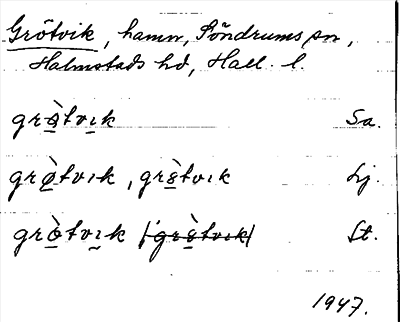 Grötvik, hamn, Söndrums sn,
Halmstads hd, Hall. l.
grò̤tvık Sa.
grø̀tvık, grò̤tvık Lj.
grò̤tvık /grò̤tvık/ St.
1947.